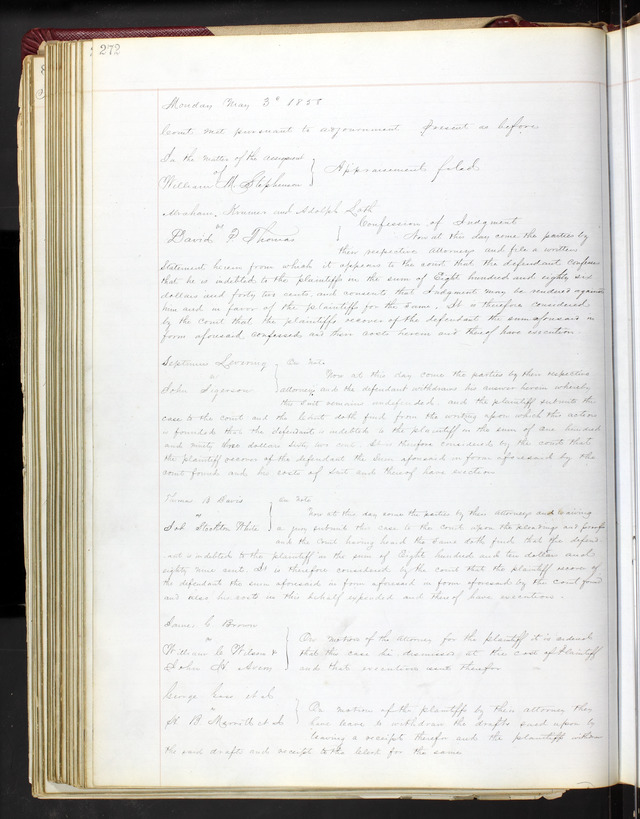 272
Monday May 3d 185
Court met pursuant to adjournment Present as before
In the matter of the assignment
of
William M. Stephenson } Appraisement filed
Abraham, Kramer and Adolph Loth
vs
David P Thomas } Confession of Judgment
Now at this day come the parties by
their respective attorneys and file a written
Statement herein from which it appears to the court that the defendant confesses
that he is indebted to the plaintiffs in the sum of Eight hundred and eighty six
dollars and forty two cents, and consents that Judgment may be rendered against
him and in favor of the plaintiffs for the same. It is therefore considered
by the court that the plaintiffs recover of the defendant the sum aforesaid in
form aforesaid confessed and their costs herein and thereof have execution
Septimus Levering } On Note
vs
John Sigerson
Now at this day come the parties by their respective
attorneys and the defendant withdraws his answer herein whereby
the suit remains undefended, and the plaintiff submits the
case to the court and the Court doth find from the writing upon which this action
is founded that the defendant is indebted to the plaintiff in the sum of One hundred
and ninety dollars cents. It is therefore considered by the court that
the plaintiff recover of the defendant the sum aforesaid in form aforesaid by the
court found and his costs of suit and thereof have execution
Thomas Davis } On Note
vs
Stockton White
Now at this day come the parties by their attorneys and waiving
a jury submit this case to the court upon the pleadings and proofs
and the Court having heard the same doth find that the defend
ant is indebted to the plaintiff in the sum of Eight hundred and ten dollars and
eighty nine cents. It is therefore considered by the court that the plaintiff recover of
the defendant the sum aforesaid in form aforesaid in form aforesaid by the court found
and also his costs in this behalf expended and thereof have execution.
James C Brown
vs
William C Wilson &
John H Avery } On motion of the attorney for the plaintiff it is ordered
that this case be dismissed at the cost of Plaintiff
and that execution issue therefor
George et al
vs
et al } On motion of the plaintiffs by their attorney they
have leave to withdraw the drafts sued upon by
leaving a receipt therefor and the plaintiffs withdraw
the said drafts and receipt to the Clerk for the same